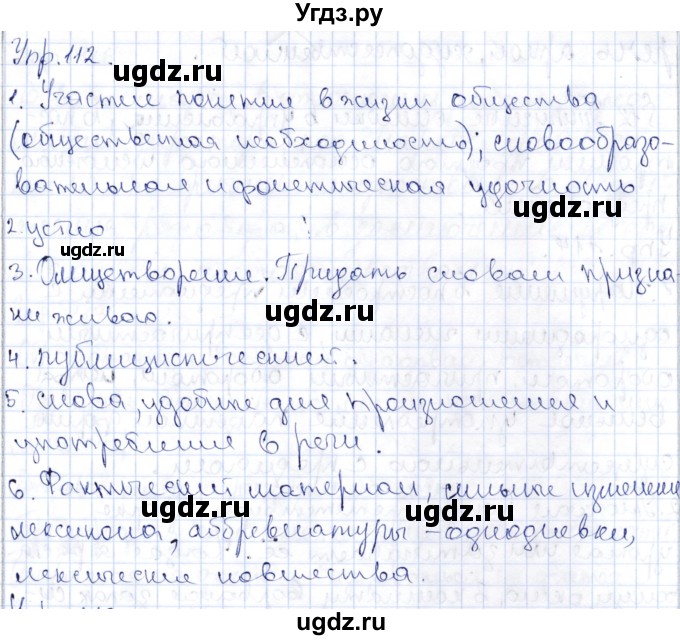 Угдз.ру
Упр.112.
ugdz.ru
1. Участие понятия в жизни общества
(общественная необходимость); словообразо-
вательная и фонетическая удачность
ugdz.ru ugdz.ru
2. устно
ugdz.ru
3. Олицетворение. Придать словам призна-
ки живого.
ugdz.ru ugdz.ru
4. публицистический.
ugdz.ru
5. слова, удобные для произношения и
употребления в речи.
ugdz.ru
6. Фактический материал, сильные изменение
ugdz.ru ugdz.ru
лексикона, аббревиатуры - однодневки,
лексические новшества.
ugdz.ru ugdz.ru